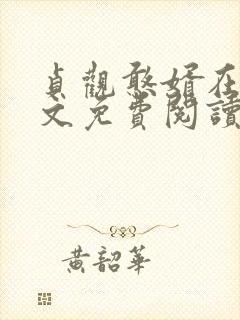 貞觀憨婿在
文免費閱讀
黃韶華